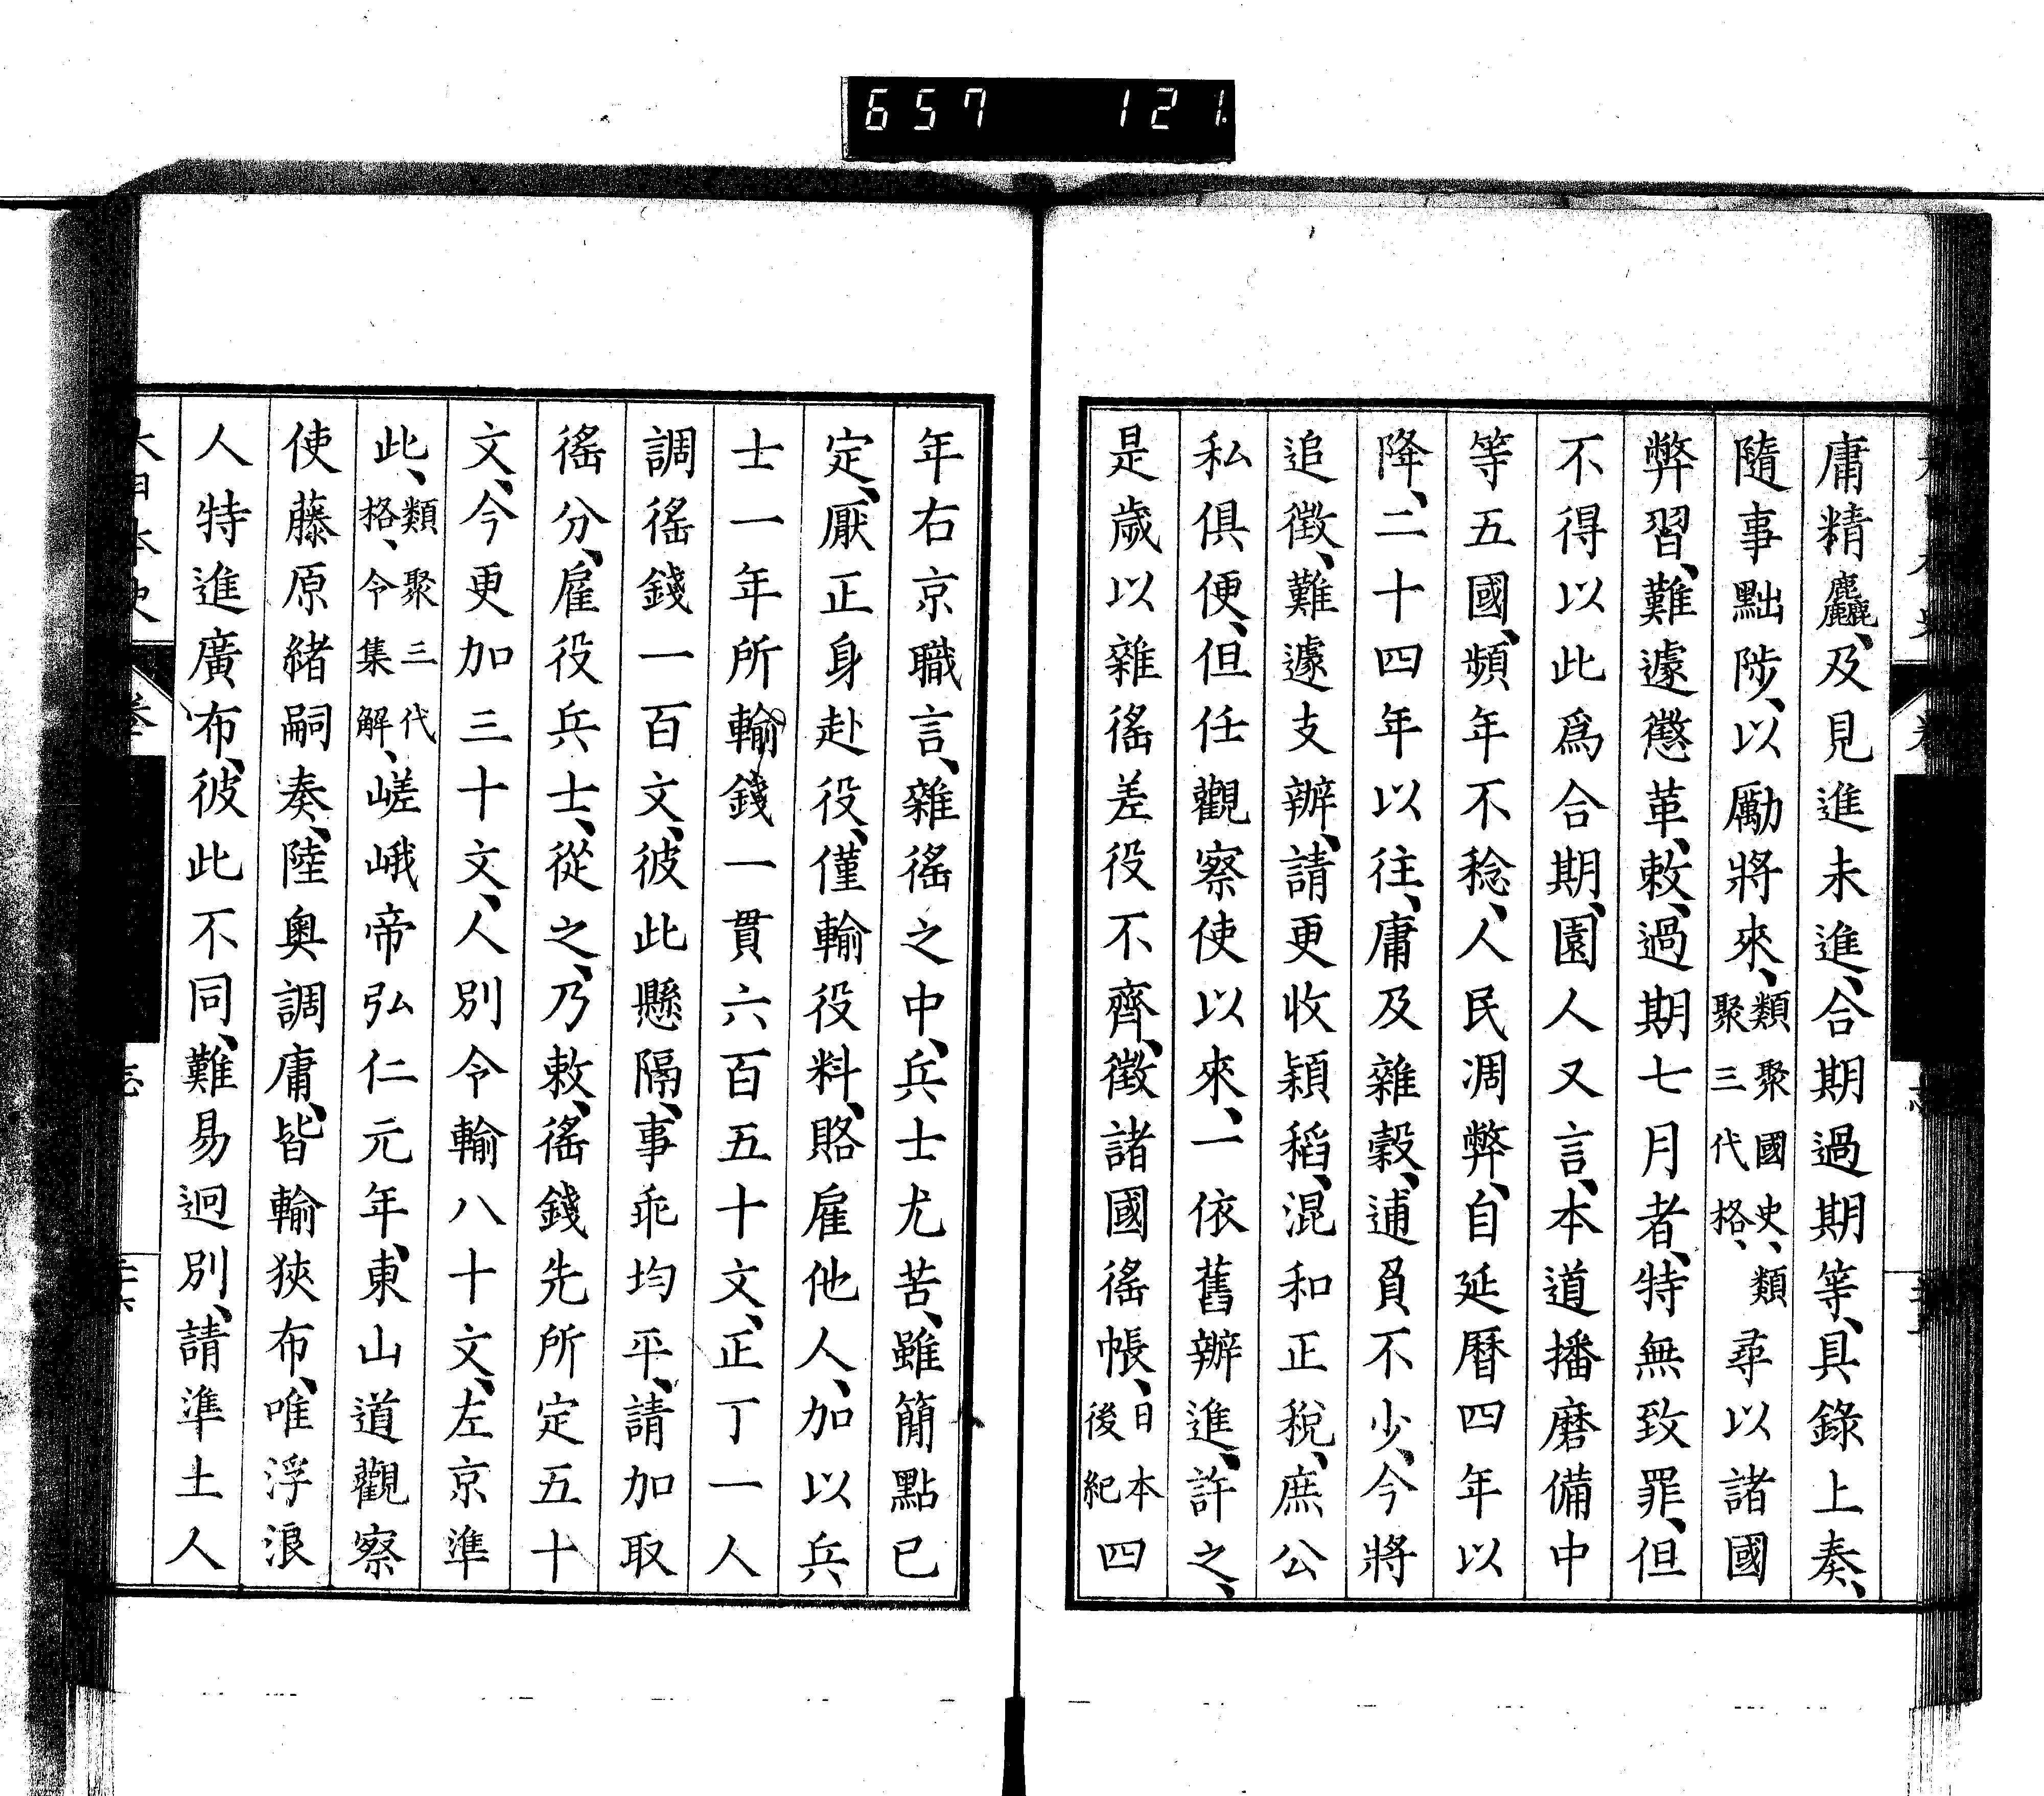 657 121
庸精麤、及見進未進、合期過期等、具錄上奏、
隨事黜陟、以勵將來、類聚國史、類聚三代格、尋以諸國
弊習、難遽懲革、敕、過期七月者、特無致罪、但
不得以此爲合期、園人又言、本道播磨備中
等五國、頻年不稔、人民凋弊、自延曆四年以
降、二十四年以往、庸及雜穀、逋負不少、今將
追徵、難遽支辦、請更收穎稻、混和正稅、庶公
私俱便、但任觀察使以來、一依舊辦進、許之、
是歲以雜徭差役不齊、徵諸國徭帳、日本後紀四
年右京職言、雜徭之中、兵士尤苦、雖簡點已
定、厭正身赴役、僅輸役料、賂雇他人、加以兵
士一年所輸錢一貫六百五十文、正丁一人
調徭錢一百文、彼此懸隔、事乖均平、請加取
徭分、雇役兵士、從之、乃敕、徭錢先所定五十
文、今更加三十文、人別令輸八十文、左京準
此、類聚三代格、令集解、嵯峨帝弘仁元年、東山道觀察
使藤原緒嗣奏、陸奧調庸、皆輸狹布、唯浮浪
人特進廣布、彼此不同、難易迥別、請準土人
大日本史
卷
志